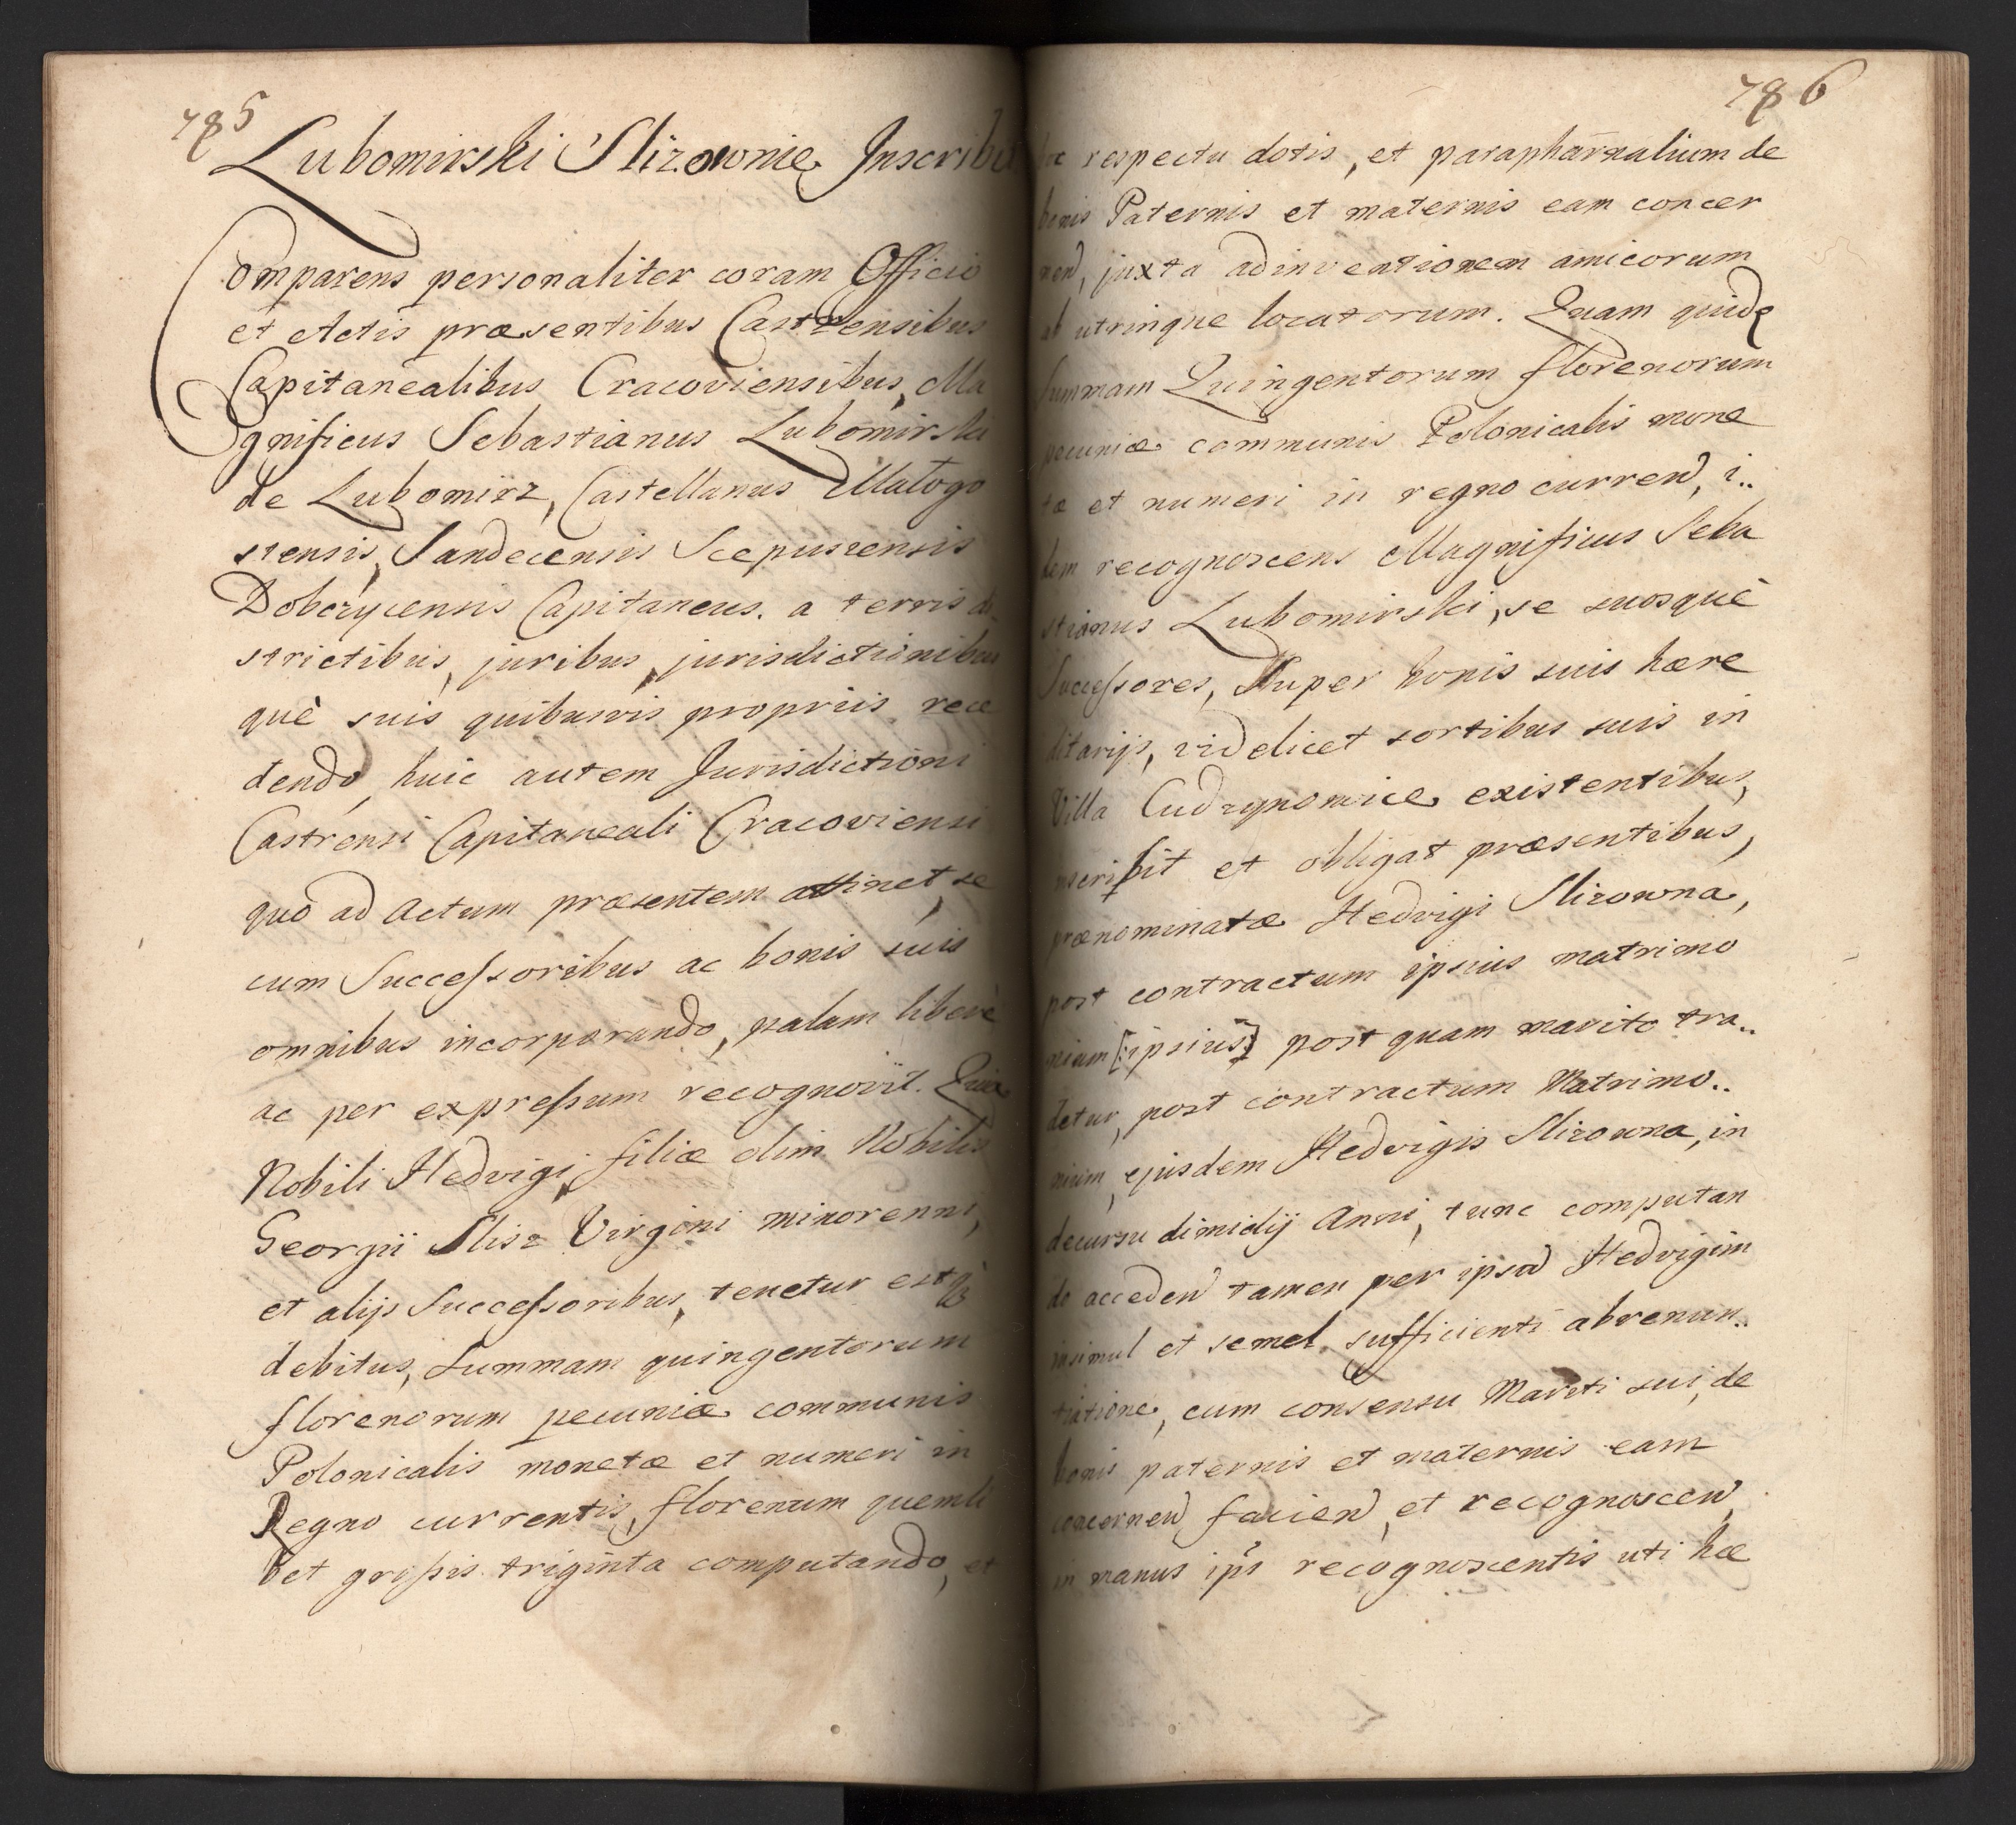 785
Lubomirski Slizownie Inscribit
Comparens personaliter coram Officio
et Actis præsentibus Castrensibus
Capitanealibus Cracoviensibus, Ma
gnificus Sebastianus Lubomirski
de Lubomirz, Castellanus Malogo
stensis, Sandecensis Scepusiensis
Dobczycensis Capitaneus. a terris di
strictibus, juribus, jurisdictionibus
què suis quibusvis propriis rece
dendo, huic autem Jurisdictioni
Castrensi Capitaneali Cracoviensi
quo ad Actum præsentem attinet, se
cum Successoribus ac bonis suis
omnibus incorporando, palam liberè
ac per expressum recognovit. Quia
Nobili Hedvigi, filiæ olim Nobilis
Georgii Slisz Virgini minorenni,
et alijs Successoribus, tenetur estq̀
debitus, Summam quingentorum
florenorum pecuniæ communis
Polonicalis monetæ et numeri in
Regno currentis, florenum quemli
bet grossis triginta computando, et
786
hoc respectu dotis, et parapharnalium de
bonis Paternis et maternis eam concer
nen, juxta adinventionem amicorum
ab utrinque locatorum. Quam quidę
Summam Quingentorum florenorum
pecuniæ communis Polonicalis mone
tæ et numeri in regno curren, i..
dem recognoscens Magnificus Seba
stianus Lubomirski, se suosquè
Successores, Super bonis suis hære
ditarijs, videlicet sortibus suis in
Villa Cudzynowice existentibus,
inscribit et obligat præsentibus,
prænominatæ Hedvigi Slizowna,
post contractum ipsius matrimo
nium [ipsius] post quam marito tra..
detur, post contractum Matrimo..
nium, ejusdem Hedvigis Slizowna, in
decursu dimidij Anni, tunc computan
do acceden tamen per ipsa Hedvigim
insimul et semel, sufficienti abrenun..
tiatione, cum consensu Mariti sui, de
bonis paternis et maternis eam
concernen facien, et recognoscen,
in manus ips recognoscentis uti hæ